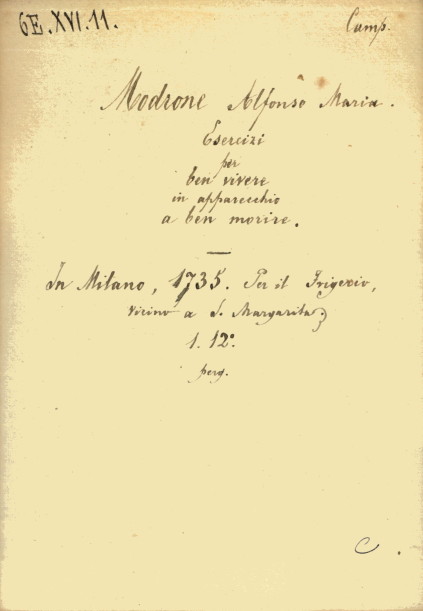 6E.XVI.11.
Camp.
Modrone Alfonso Maria.
Esercizi
per
ben vivere
in apparecchio
a ben morire.
In Milano, 1735. Per il Frigerio,
vicino a S. Margarita;
1. 12°.
perg.
C.